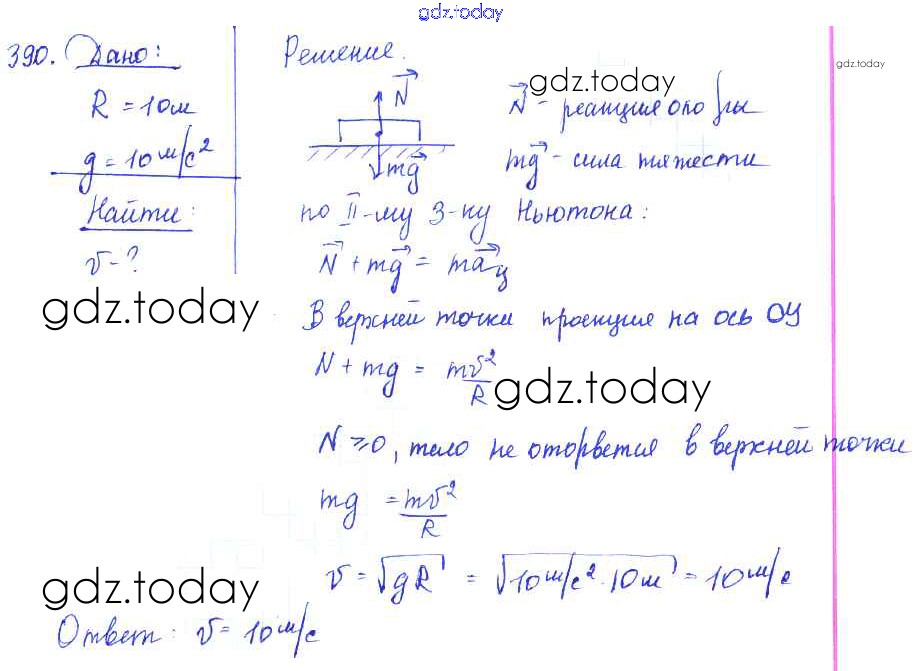 gdz.today
390. Дано:
R = 10м
g = 10 м/с²
Найти:
v - ?
Решение.
N
mg
gdz.today
gdz.today
N - реакция опоры
mg - сила тяжести
по II-му З-ну Ньютона:
N + mg = maц
gdz.today
В верхней точки проекция на ось ОУ
N + mg = mv²/R
gdz.today
N ≥ 0, тело не оторвется в верхней точки
mg = mv²/R
v = √gR = √10 м/с² · 10м = 10 м/с
gdz.today
Ответ: v = 10 м/с